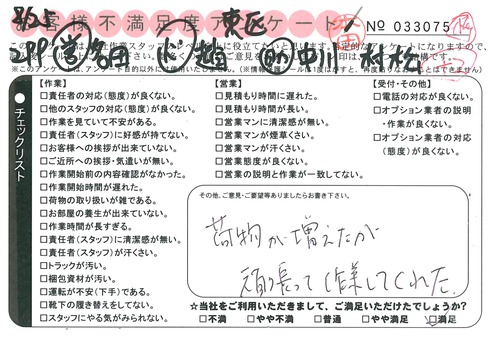 8/25 東区
お客様不満足度アンケート
No 033075
2PP 営 名田 作 趙 助 中川 村松
チェックリスト
【作業】
□責任者の対応(態度)が良くない。
□他のスタッフの対応(態度)が良くない。
□作業を見ていて不安がある。
□責任者(スタッフ)に好感が持てない。
□お客様への挨拶が出来ていない。
□ご近所への挨拶・気遣いが無い。
□作業開始前の内容確認がなかった。
□作業開始時間が遅れた。
□荷物の取り扱いが雑である。
□お部屋の養生が出来ていない。
□作業時間が長すぎる。
□責任者(スタッフ)に清潔感が無い。
□責任者(スタッフ)が汗くさい。
□トラックが汚い。
□梱包資材が汚い。
□運転が不安(下手)である。
□靴下の履き替えをしてない。
□スタッフにやる気がみられない。
【営業】
□見積もり時間に遅れた。
□見積もり時間が長い。
□営業マンに清潔感が無い。
□営業マンが煙草くさい。
□営業マンが汗くさい。
□営業態度が良くない。
□営業の説明と作業が一致してない。
【受付・その他】
□電話の対応が良くない。
□オプション業者の説明
・作業が良くない。
□オプション業者の対応
(態度)が良くない。
その他、ご意見・ご要望等ありましたらお書き下さい。
荷物が増えたが
頑張って作業してくれた。
☆当社をご利用いただきまして、ご満足いただけたでしょうか?
□不満 □やや不満 □普通 □やや満足 □満足